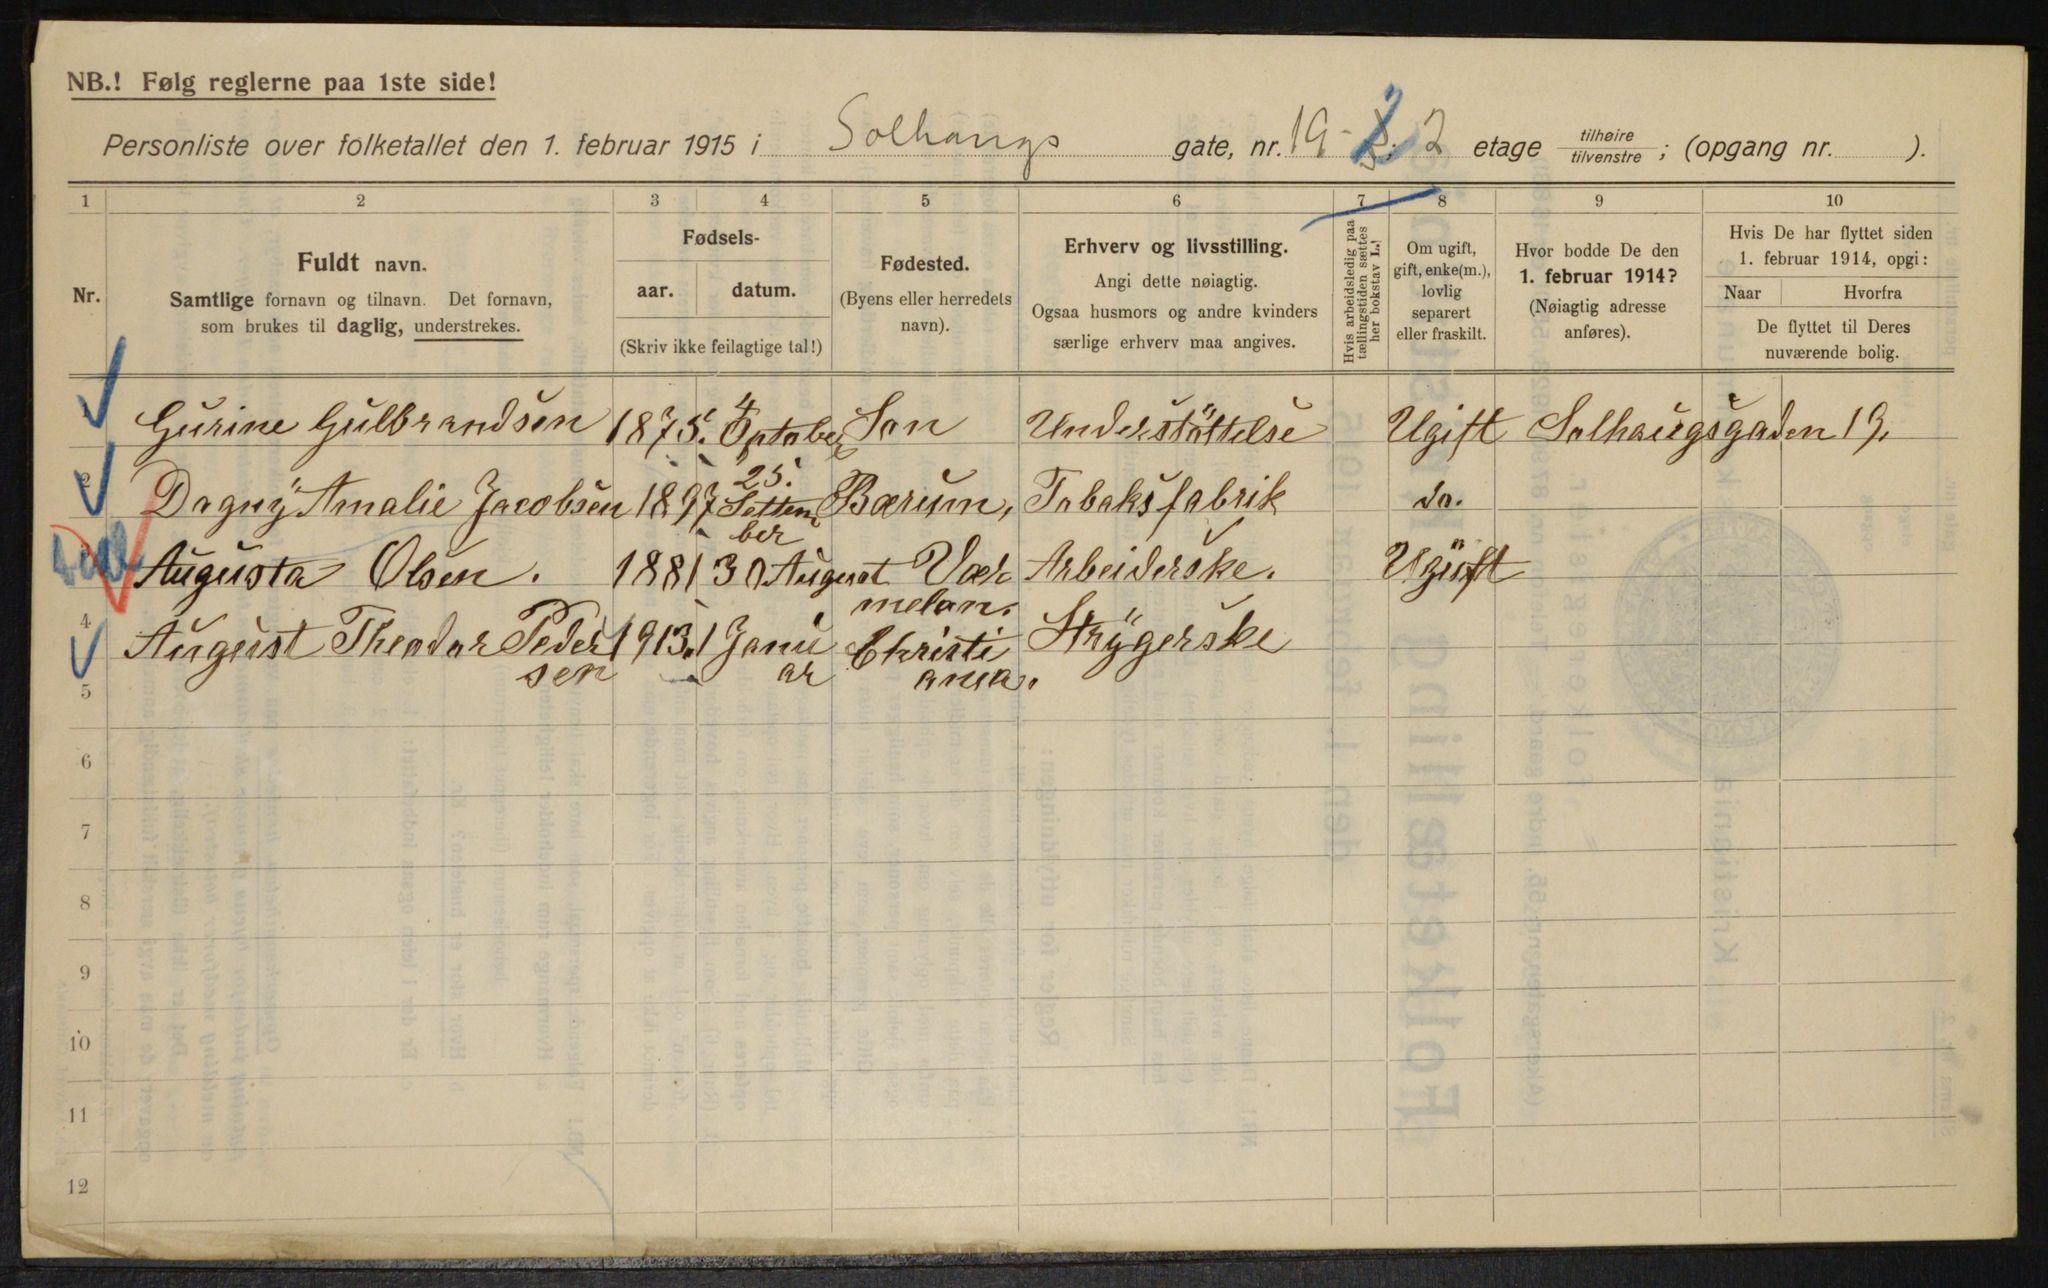 NB.! Følg reglerne paa 1ste side!
Personliste over folketallet den 1. februar 1915 i Solhaugs gate, nr. 19 - 2 etage tilhøire / tilvenstre; (opgang nr. ).
1 2 3 4 5 6 7 8 9 10
Nr.
Fuldt navn.
Samtlige fornavn og tilnavn. Det fornavn,
som brukes til daglig, understrekes.
Fødsels-
aar. datum.
(Skriv ikke feilagtige tal!)
Fødested.
(Byens eller herredets
navn).
Erhverv og livsstilling.
Angi dette nøiagtig.
Ogsaa husmors og andre kvinders
særlige erhverv maa angives.
Hvis arbeidsledig paa
tællingstiden sættes
her bokstav L.!
Om ugift,
gift, enke(m.),
lovlig
separert
eller fraskilt.
Hvor bodde De den
1. februar 1914?
(Nøiagtig adresse
anføres).
Hvis De har flyttet siden
1. februar 1914, opgi:
Naar Hvorfra
De flyttet til Deres
nuværende bolig.
Gurine Gulbrandsen 1875. 4 Oktober Son Understøttelse Ugift Solhaugsgaden 19.
Dagny Amalie Jacobsen 1897 25. Settember Bærum, Tobaksfabrik do.
Augusta Olsen. 1881 30 August Værmelan. Arbeiderske. Ugift
4 August Theodor Pedersen 1913. 1 Januar Christiania. Strygerske
5
6
7
8
9
10
11
12